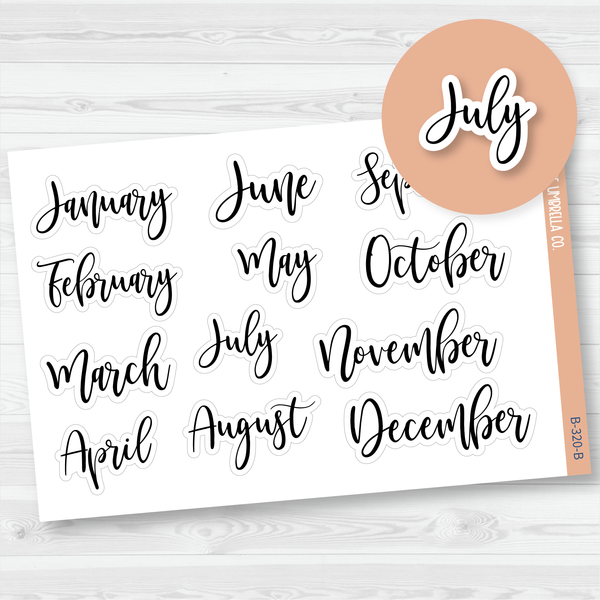 July
January
February
March
April
June
May
July
August
October
November
December
UMBRELLA CO.
B-320-B